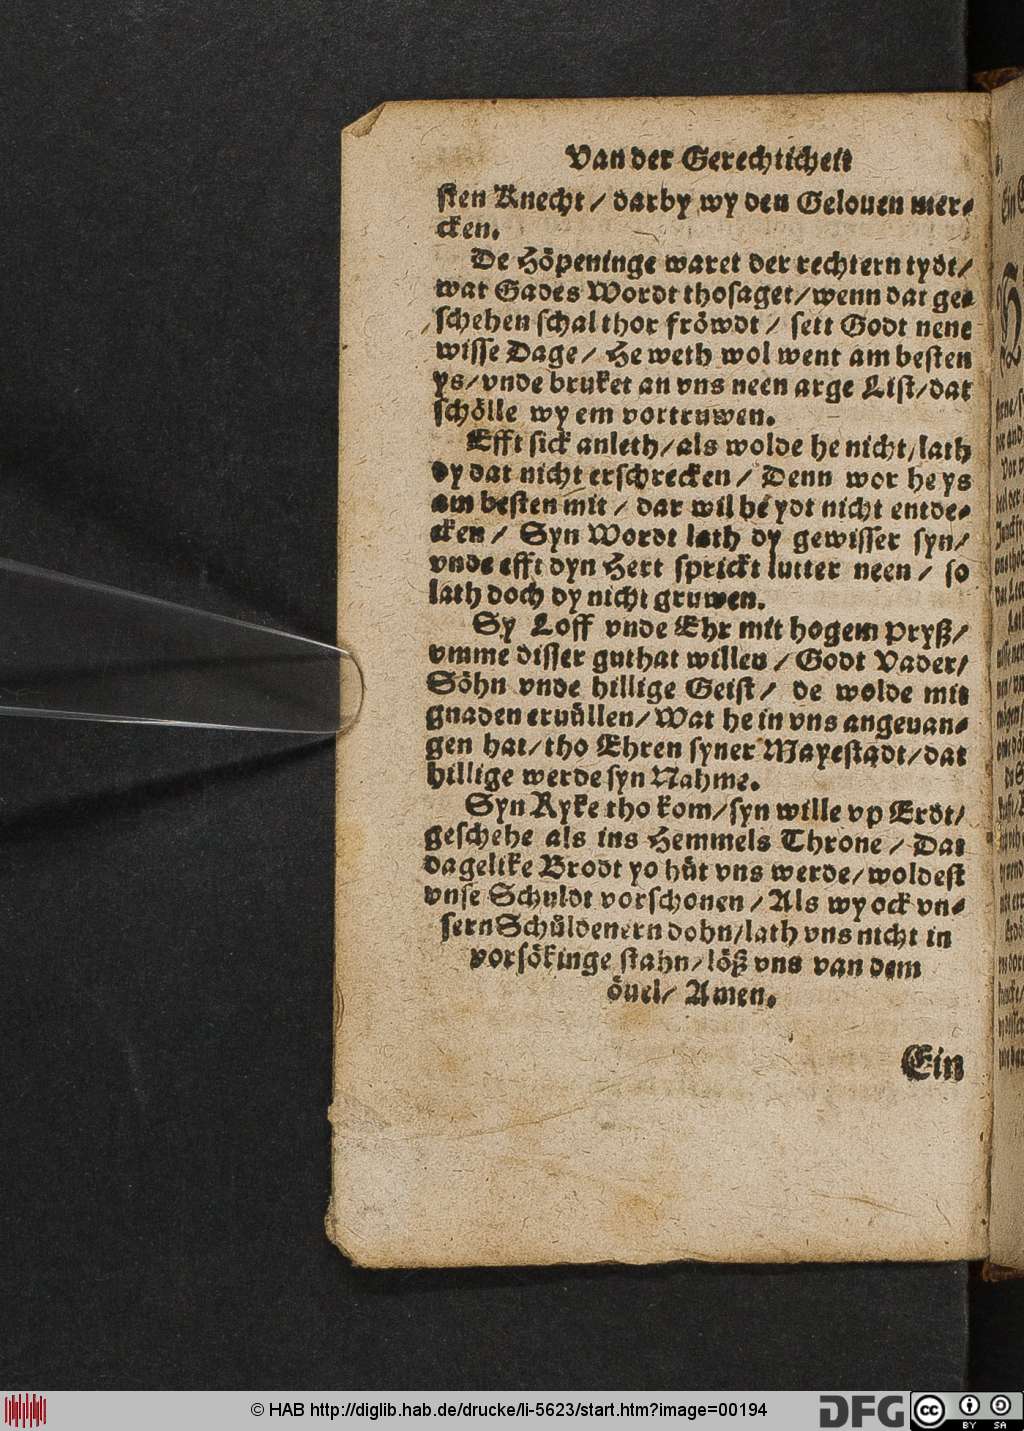 Van der Gerechticheit
sten Knecht / darby wy den Gelouen mer-
cken.
De Höpeninge waret der rechtern tydt /
wat Gades Wordt thosaget / wenn dat ge-
schehen schal thor fröwdt / sett Godt nene
wisse Dage / He weth wol went am besten
ys / vnde bruket an vns neen arge List / dat
schölle wy em vortruwen.
Efft sick anleth / als wolde he nicht / lath
dy dat nicht erschrecken / Denn wor he ys
am besten mit / dar wil he ydt nicht entde-
cken / Syn Wordt lath dy gewisser syn /
vnde efft dyn Hert sprickt lutter neen / so
lath doch dy nicht gruwen.
Sy Loff vnde Ehr mit hogem pryß /
vmme disser guthat willen / Godt Vader /
Söhn vnde hillige Geist / de wolde mit
gnaden eruüllen / Wat he in vns angeuan-
gen hat / tho Ehren syner Mayestadt / dat
hillige werde syn Nahme.
Syn Ryke tho kom / syn wille vp Erdt /
geschehe als ins Hemmels Throne / Dat
dagelike Brodt yo hüt vns werde / woldest
vnse Schuldt vorschonen / Als wy ock vn-
sern Schüldenern dohn / lath vns nicht in
vorsökinge stahn / löß vns van dem
öuel / Amen.
Ein
© HAB http://diglib.hab.de/drucke/li-5623/start.htm?image=00194
DFG
cc
BY SA